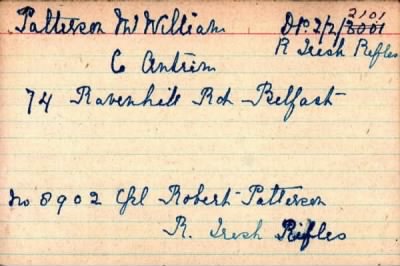 Patterson Mr William Dp. 2/2/2101
R Irish Rifles
Co Antrim
74 Ravenhill Rd Belfast
No 8902 Cpl Robert Patterson
R. Irish Rifles